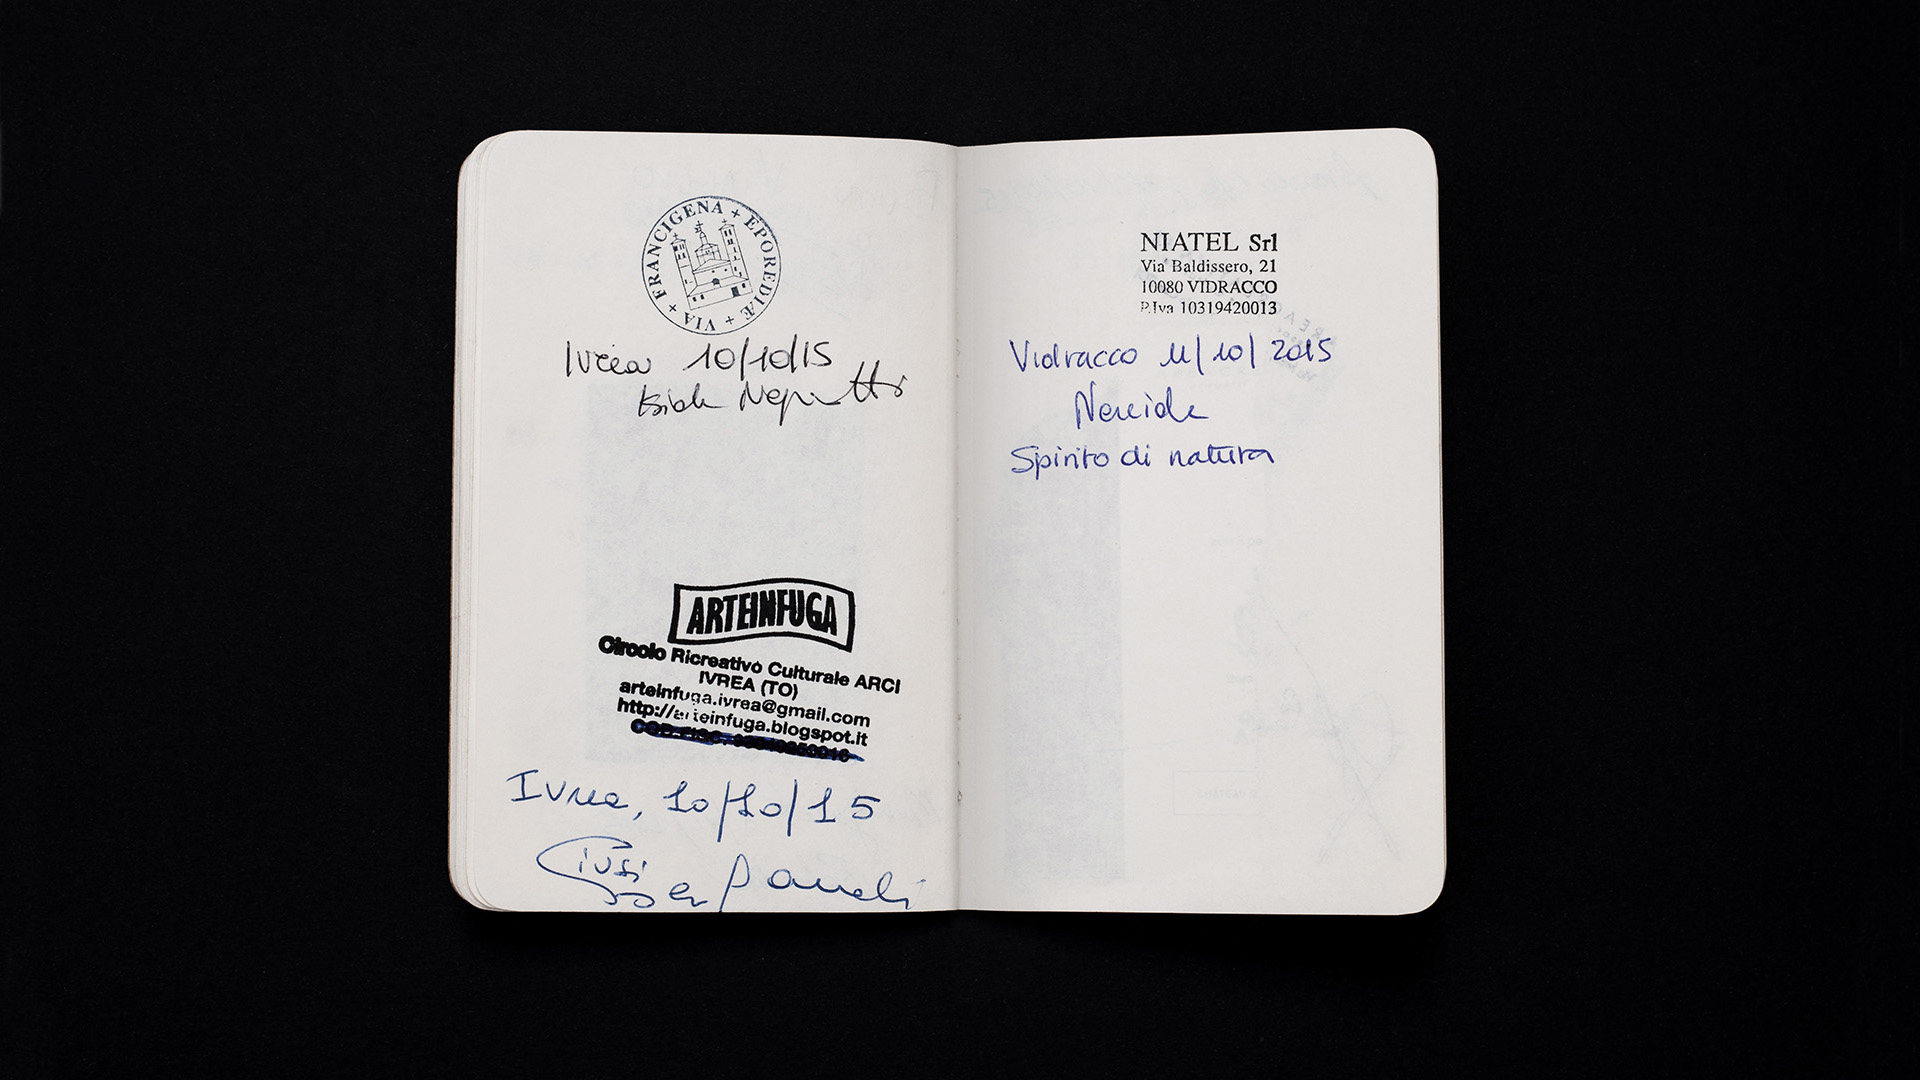 VIA + FRANCIGENA + EPOREDIÆ +
Ivrea 10/10/15
ARTEINFUGA
Circolo Ricreativo Culturale ARCI
IVREA (TO)
arteinfuga.ivrea@gmail.com
http://arteinfuga.blogspot.it
Ivrea, 10/10/15
Giusi
NIATEL Srl
Via Baldissero, 21
10080 VIDRACCO
P.Iva 10319420013
Vidracco 11/10/2015
Nereide
Spirito di natura